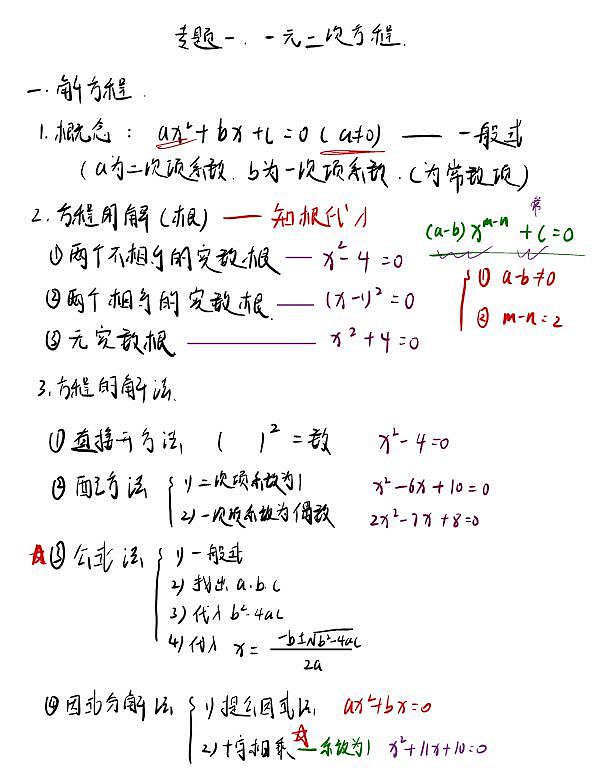 专题一.一元二次方程.
一.解方程.
1.概念: ax²+bx+c=0(a≠0) —— 一般式
(a为二次项系数.b为一次项系数.c为常数项)
2.方程的解(根) —— 知根代入
常
(a-b)x^{m-n}+c=0
①两个不相等的实数根 — x²-4=0
① a-b≠0
②两个相等的实数根 — (x-1)²=0
② m-n=2
③无实数根 —— x²+4=0
3.方程的解法.
①直接开方法 ( )²=数 x²-4=0
②配方法 { 1)二次项系数为1 x²-6x+10=0
2)一次项系数为偶数 2x²-7x+8=0
☆③公式法 { 1)一般式
2)找出a.b.c
3)代入b²-4ac
4)代入 x= \frac{-b±\sqrt{b²-4ac}}{2a}
④因式分解法 { 1)提公因式法 ax²+bx=0
2)十字相乘☆—系数为1 x²+11x+10=0